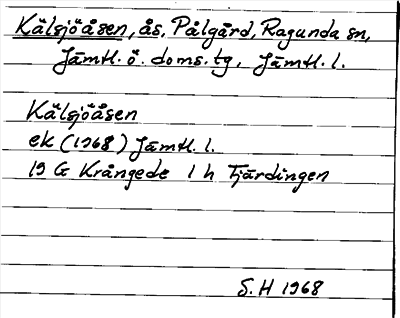 Kälsjöåsen, ås, Pålgård, Ragunda sn,
Jämtl. ö. doms. tg, Jämtl. l.
Kälsjöåsen
ek (1968) Jämtl. l.
19 G Krångede 1 h Fjärdingen
S. H 1968